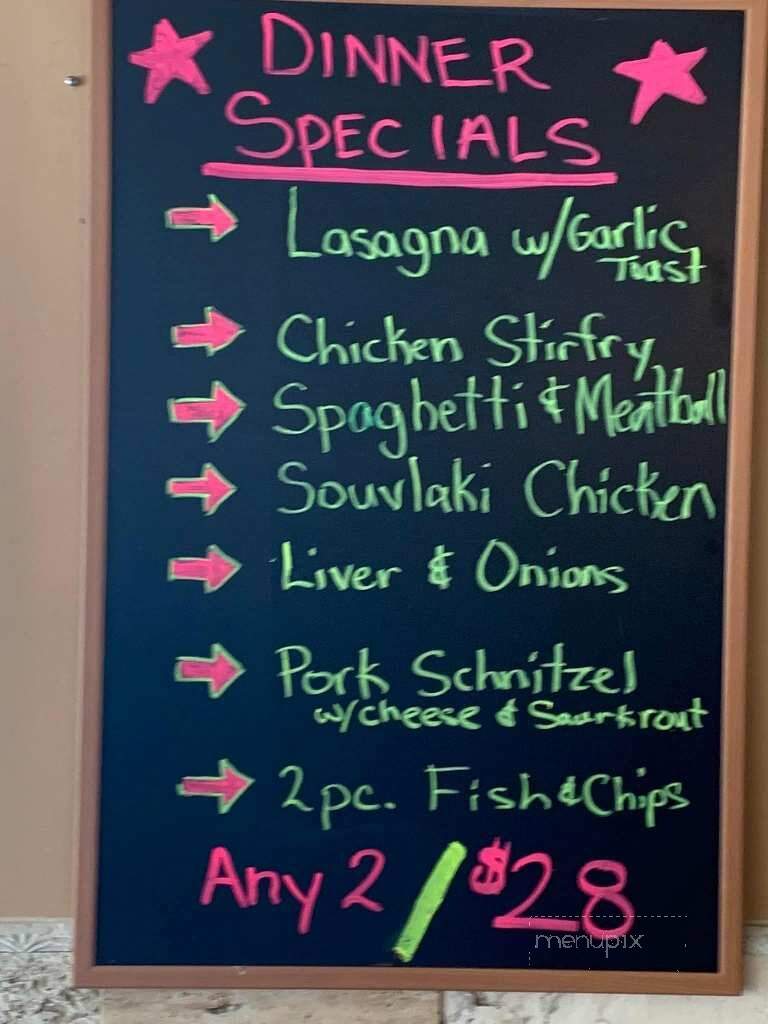 DINNER
SPECIALS
Lasagna w/Garlic
Toast
Chicken Stirfry
Spaghetti & Meatball
Souvlaki Chicken
Liver & Onions
Pork Schnitzel
w/cheese & Saurkrout
2pc. Fish & Chips
Any 2 / $28
menupix